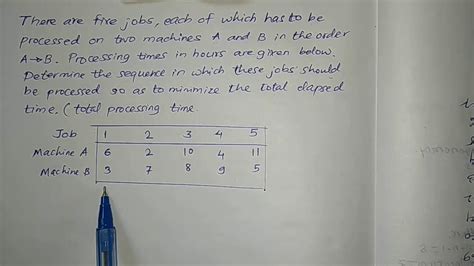 There are five jobs, each of which has to be
processed on two machines A and B in the order
A→B. Processing times in hours are given below.
Determine the sequence in which these jobs should
be processed so as to minimize the total elapsed
time. (total processing time
Job 1 2 3 4 5
Machine A 6 2 10 4 11
Machine B 3 7 8 9 5